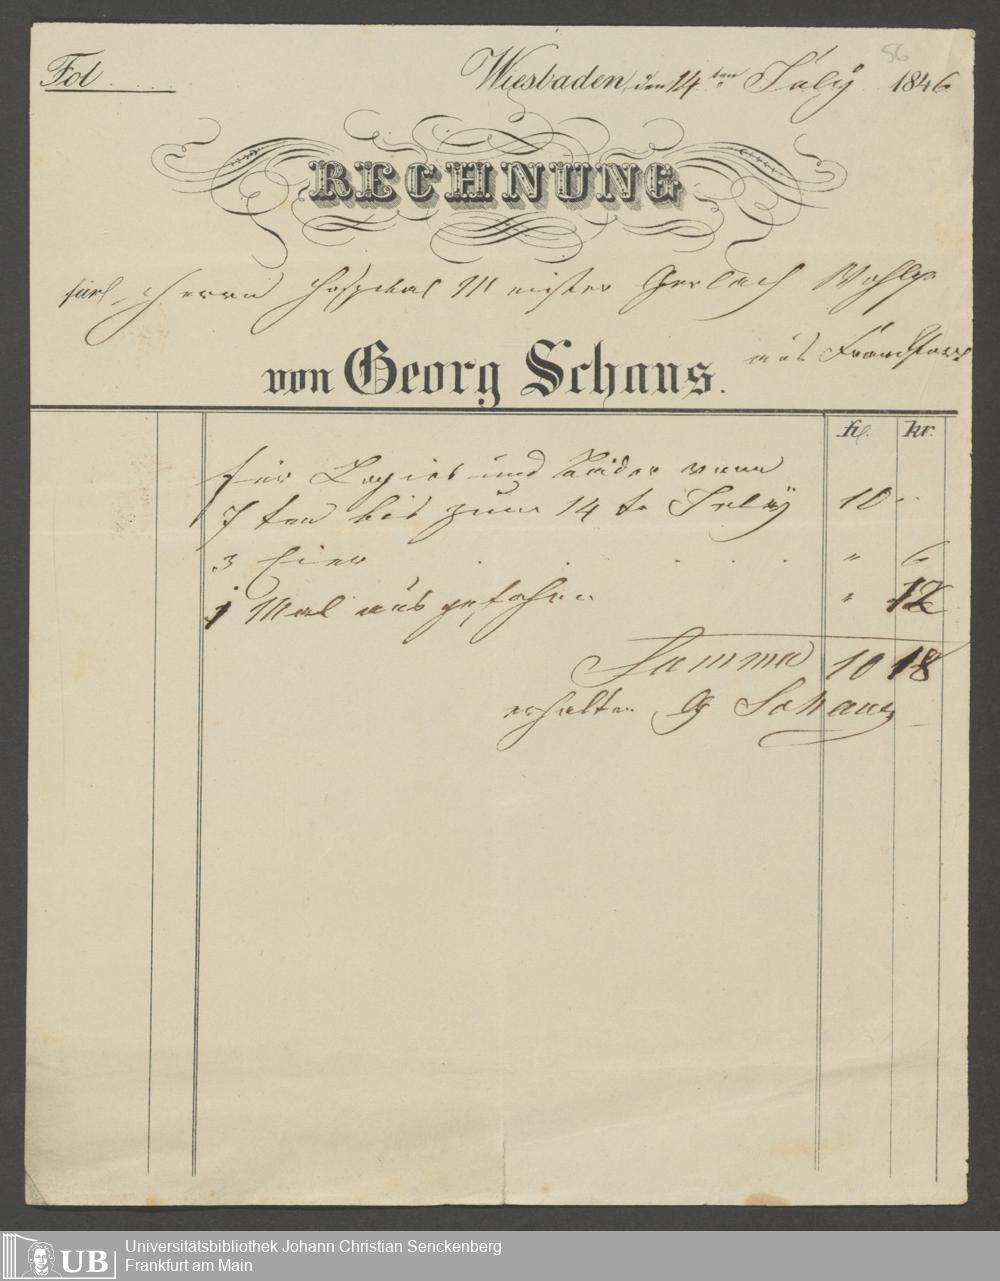 56
Fol . . . . .
Wiesbaden, den 14ten July 1846
RECHNUNG
für Herrn Hospital Meister Gerlach Wohlg.
von Georg Schaus.
aus Franckfurt
fl. kr.
für Logies und Bäder vom
7 ten bis zum 14 t. July 10 "
3 Eier . . . . . " 6
1 Mal ausgefahren " 12
Summa 10 18
erhalten G Schaus
UB Universitätsbibliothek Johann Christian Senckenberg
Frankfurt am Main